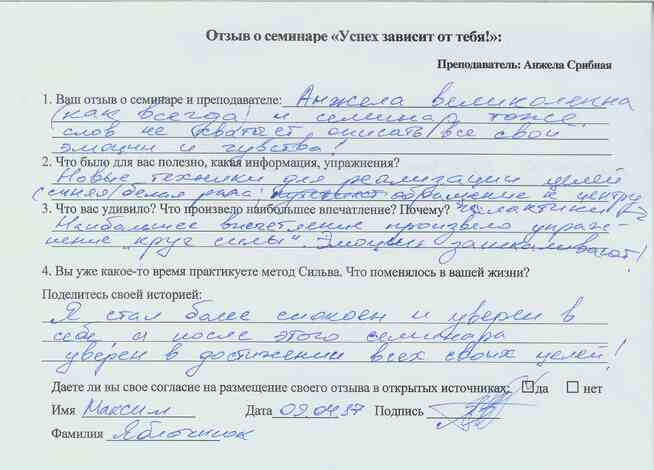 Отзыв о семинаре «Успех зависит от тебя!»:
Преподаватель: Анжела Срибная
1. Ваш отзыв о семинаре и преподавателе: Анжела великолепна
(как всегда) и семинар тоже.
слов не хватает описать все свои
эмоции и чувства!
2. Что было для вас полезно, какая информация, упражнения?
Новые техники для реализации целей
(синяя/белая рама, обращение к центру
галактики)
3. Что вас удивило? Что произвело наибольшее впечатление? Почему?
Наибольшее впечатление произвело упраж-
нение "круг силы". Эмоции зашкаливают!
4. Вы уже какое-то время практикуете метод Сильва. Что поменялось в вашей жизни?
Поделитесь своей историей:
Я стал более спокоен и уверен в
себе, а после этого семинара
уверен в достижении всех своих целей!
Даете ли вы свое согласие на размещение своего отзыва в открытых источниках: да нет
Имя Максим Дата Подпись
Фамилия